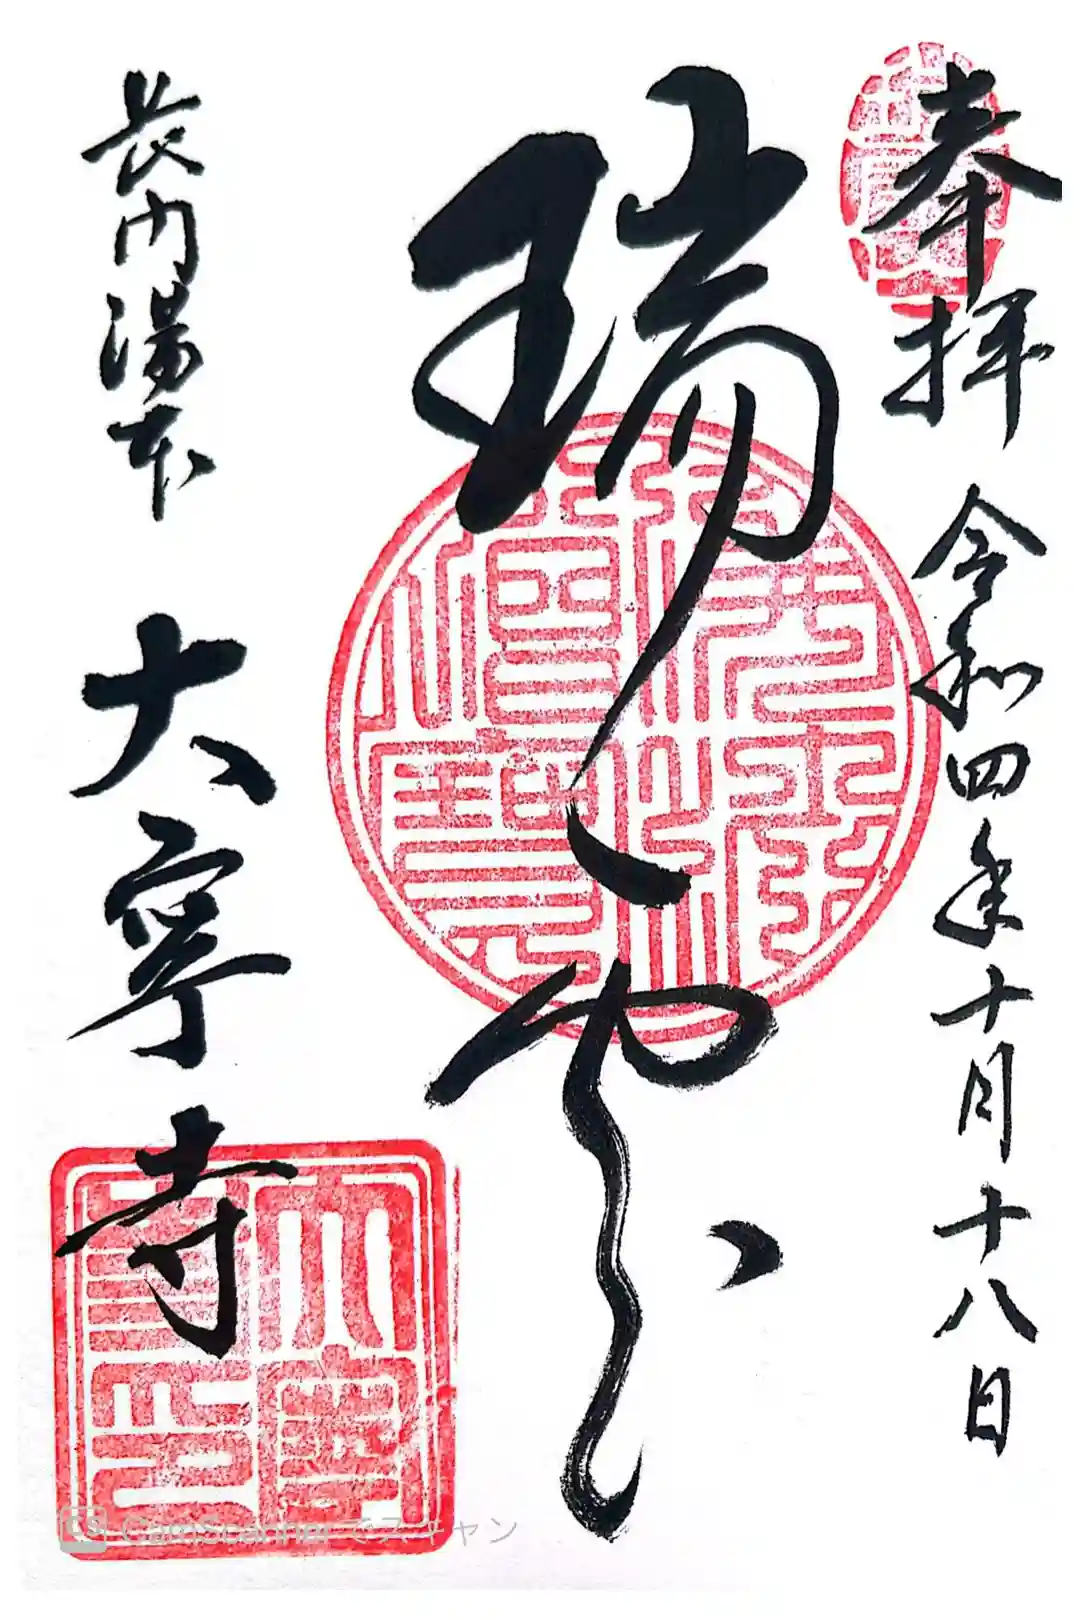 奉拝 令和四年十月十八日
瑞雲
長門湯本 大寧寺
大寧
寺印
CS CamScanner でスキャン